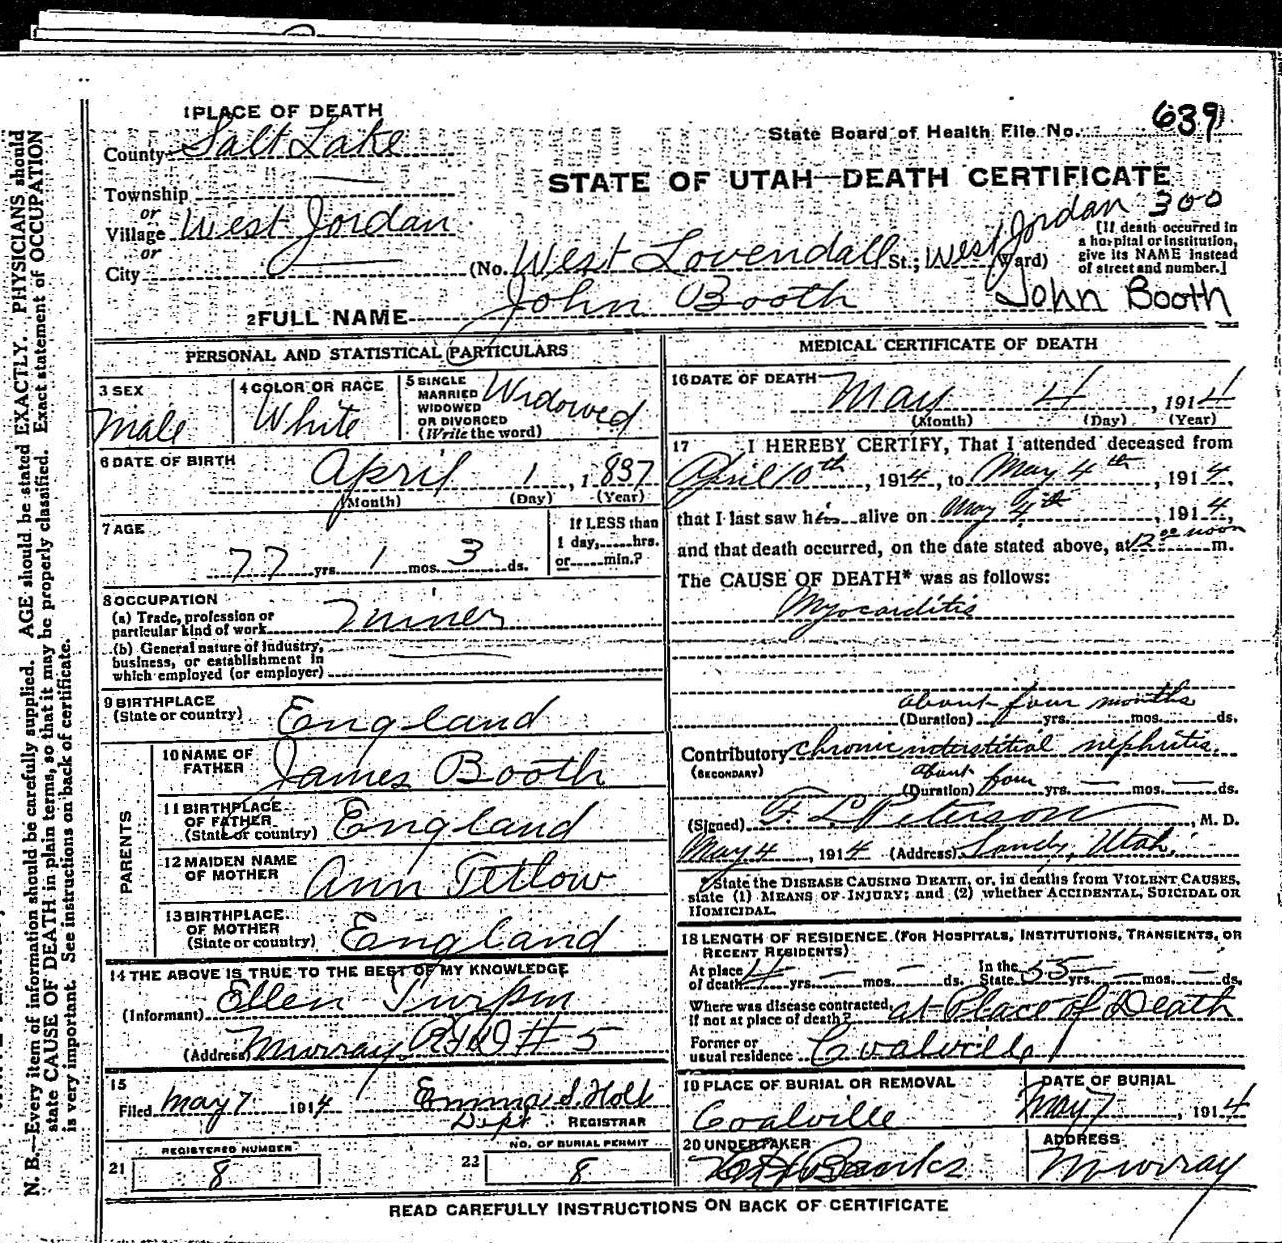 639
1 PLACE OF DEATH
State Board of Health File No.
County Salt Lake
STATE OF UTAH—DEATH CERTIFICATE
Township
or
Village West Jordan
or
City
(No. West Lovendall St.; West Jordan 300 Ward)
[If death occurred in
a hospital or institution,
give its NAME instead
of street and number.]
2 FULL NAME John Booth
John Booth
PERSONAL AND STATISTICAL PARTICULARS
3 SEX
Male
4 COLOR OR RACE
White
5 SINGLE
MARRIED
WIDOWED
OR DIVORCED
(Write the word)
Widowed
6 DATE OF BIRTH
April 1, 1837
(Month) (Day) (Year)
7 AGE
77 yrs. 1 mos. 3 ds.
If LESS than
1 day,......hrs.
or......min.?
8 OCCUPATION
(a) Trade, profession or
particular kind of work Miner
(b) General nature of industry,
business, or establishment in
which employed (or employer)
9 BIRTHPLACE
(State or country) England
PARENTS
10 NAME OF
FATHER James Booth
11 BIRTHPLACE
OF FATHER
(State or country) England
12 MAIDEN NAME
OF MOTHER Ann Tetlow
13 BIRTHPLACE
OF MOTHER
(State or country) England
14 THE ABOVE IS TRUE TO THE BEST OF MY KNOWLEDGE
(Informant) Ellen Turpin
(Address) Murray RFD # 5
15
Filed May 7 1914 Emma S. Holt
Dept. REGISTRAR
REGISTERED NUMBER
21 8
NO. OF BURIAL PERMIT
22 8
MEDICAL CERTIFICATE OF DEATH
16 DATE OF DEATH
May 4, 1914
(Month) (Day) (Year)
17 I HEREBY CERTIFY, That I attended deceased from
April 10th, 1914, to May 4th, 1914,
that I last saw him alive on May 4th, 1914,
and that death occurred, on the date stated above, at 12 00 noon m.
The CAUSE OF DEATH* was as follows:
Myocarditis
about four months
(Duration) yrs. mos. ds.
Contributory chronic interstitial nephritis
(SECONDARY)
about four
(Duration) yrs. — mos. — ds.
(Signed) F. L. Peterson, M. D.
May 4, 1914 (Address) Sandy, Utah.
*State the DISEASE CAUSING DEATH, or, in deaths from VIOLENT CAUSES,
state (1) MEANS OF INJURY; and (2) whether ACCIDENTAL, SUICIDAL OR
HOMICIDAL.
18 LENGTH OF RESIDENCE (FOR HOSPITALS, INSTITUTIONS, TRANSIENTS, OR
RECENT RESIDENTS)
At place of death 4 yrs. — mos. — ds. In the State 35 yrs. — mos. — ds.
Where was disease contracted,
if not at place of death? at Place of Death
Former or
usual residence Coalville
19 PLACE OF BURIAL OR REMOVAL
Coalville
DATE OF BURIAL
May 7, 1914
20 UNDERTAKER
Banks
ADDRESS
Murray
READ CAREFULLY INSTRUCTIONS ON BACK OF CERTIFICATE
N. B.—Every item of information should be carefully supplied. AGE should be stated EXACTLY. PHYSICIANS should
state CAUSE OF DEATH in plain terms, so that it may be properly classified. Exact statement of OCCUPATION
is very important. See instructions on back of certificate.